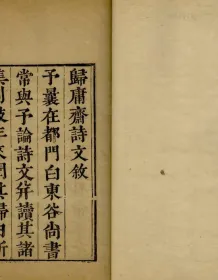 歸庸齋詩文敘
予曩在都門白東谷尚書
常與予論詩文幷讀其諸
其歸田所